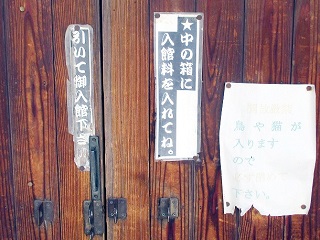 引いて御入館下さい
★中の箱に
入館料を入れてね。
鳥や猫が
入ります
ので
下さい。